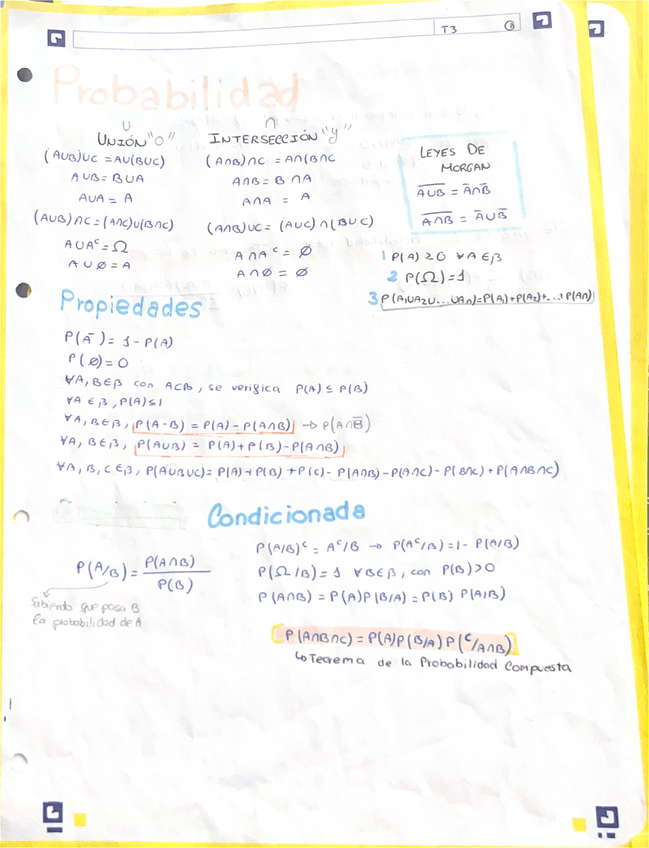 T3
Probabilidad
∪
UNIÓN "O"
(A∪B)∪C = A∪(B∪C)
A∪B = B∪A
A∪A = A
(A∪B)∩C = (A∩C)∪(B∩C)
A∪Aᶜ = Ω
A∪Ø = A
∩
INTERSECCIÓN "y"
(A∩B)∩C = A∩(B∩C
A∩B = B∩A
A∩A = A
(A∩B)∪C = (A∪C)∩(B∪C)
A∩Aᶜ = Ø
A∩Ø = Ø
LEYES DE
MORGAN
A̅∪̅B̅ = A̅∩B̅
A̅∩̅B̅ = A̅∪B̅
1 P(A) ≥ 0 ∀A∈β
2 P(Ω) = 1
3 P(A₁∪A₂∪...∪An)=P(A₁)+P(A₂)+...+P(An)
Propiedades
P(A̅) = 1 - P(A)
P(Ø) = 0
∀A, B∈β con A⊂B, se verifica P(A) ≤ P(B)
∀A∈β, P(A)≤1
∀A, B∈β, P(A-B) = P(A) - P(A∩B) → P(A∩B̅)
∀A, B∈β, P(A∪B) = P(A)+P(B)-P(A∩B)
∀A, B, C∈β, P(A∪B∪C) = P(A)+P(B)+P(C)-P(A∩B)-P(A∩C)-P(B∩C)+P(A∩B∩C)
Condicionada
P(A/B) = P(A∩B)/P(B)
Sabiendo que pasa B
la probabilidad de A
P(A/B)ᶜ = Aᶜ/B → P(Aᶜ/B) = 1- P(A/B)
P(Ω/B) = 1 ∀B∈β, con P(B)>0
P(A∩B) = P(A)P(B/A) = P(B) P(A/B)
P(A∩B∩C) = P(A)P(B/A)P(C/A∩B)
↳ Teorema de la Probabilidad Compuesta